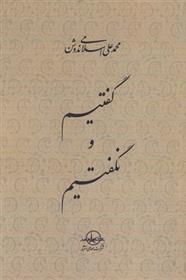 محمدعلی اسلامی ندوشن
گفتیم
و
نگفتیم